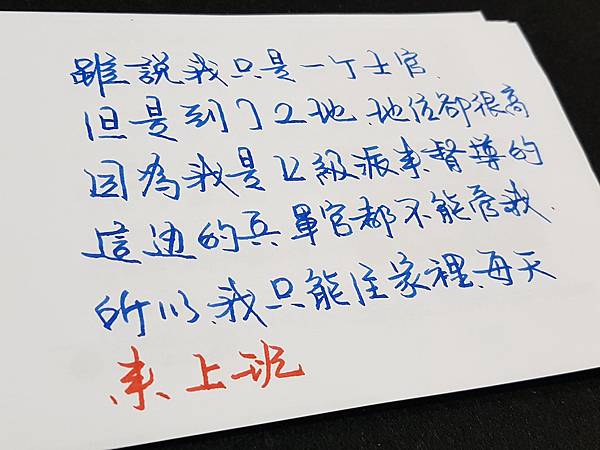 雖說我只是一个士官.
但是到了工地,地位卻很高
因為我是上級派来督導的
這边的兵單官都不能管我.
所以,我只能住家裡,每天
来上班